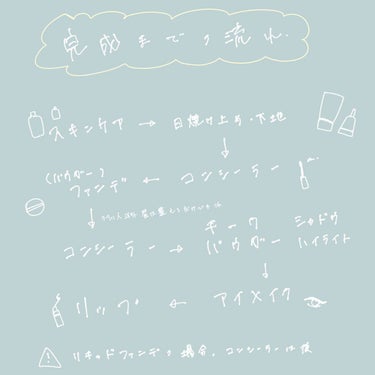 完成までの流れ.
スキンケア → 日焼け止め・下地
↓
(パウダー)
ファンデ ← コンシーラー
↓
コンシーラー → チーク パウダー シャドウ ハイライト
↓
リップ ← アイメイク
リキッドファンデの場合、コンシーラーは後